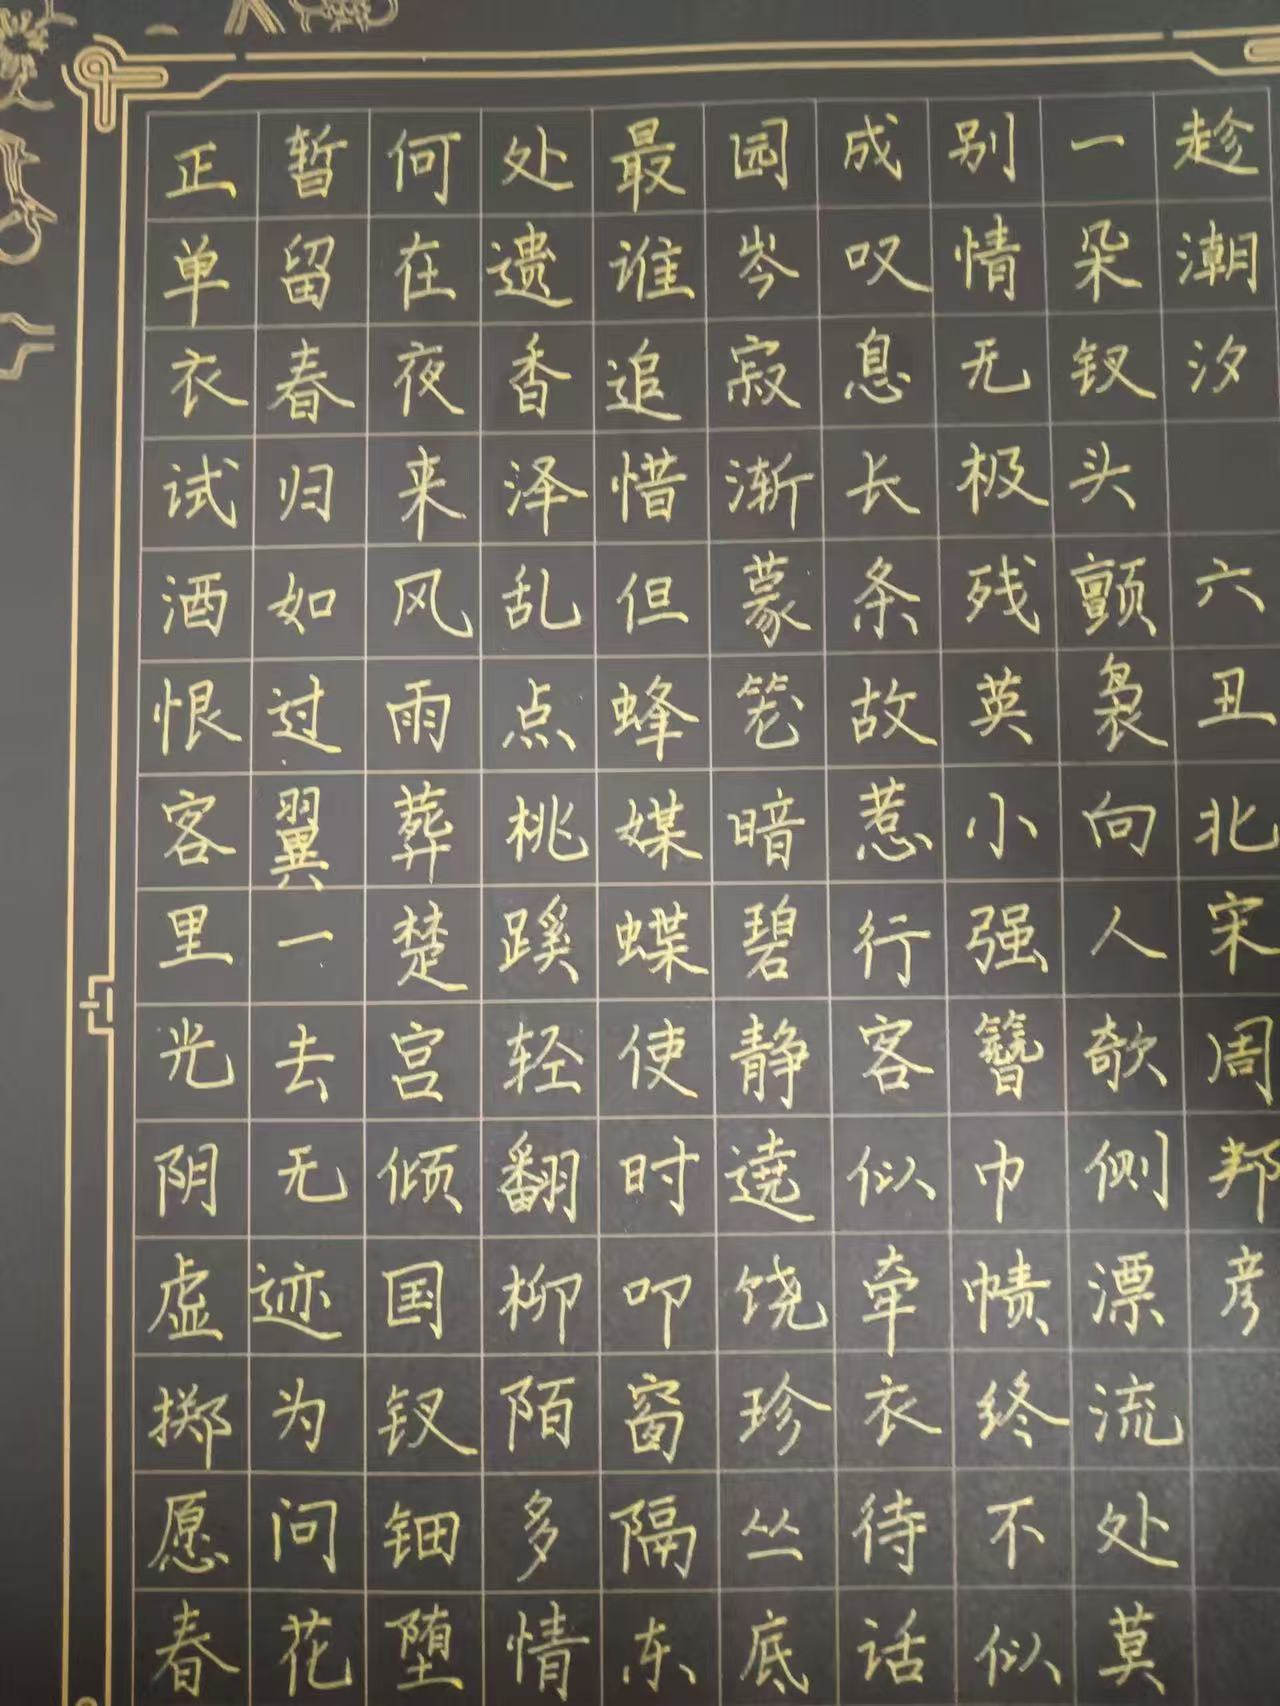 正单衣试酒恨客里光阴虚掷愿春
暂留春归如过翼一去无迹为问花
何在夜来风雨葬楚宫倾国钗钿堕
处遗香泽乱点桃蹊轻翻柳陌多情
最谁追惜但蜂媒蝶使时叩窗隔东
园岑寂渐蒙笼暗碧静遶饶珍丛底
成叹息长条故惹行客似牵衣待话
别情无极残英小强簪巾帻终不似
一朵钗头颤袅向人欹侧漂流处莫
趁潮汐 六丑北宋周邦彦